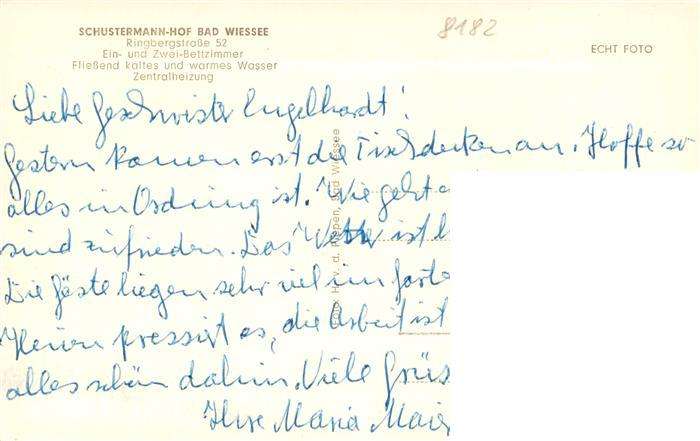 SCHUSTERMANN-HOF BAD WIESSEE
Ringbergstraße 52
Ein- und Zwei-Bettzimmer
Fließend kaltes und warmes Wasser
Zentralheizung
8182
ECHT FOTO
Liebe Geschwister Engelhardt!
Gestern kamen erst die Tischdecken an. Hoffe so
alles in Ordnung ist. Wie geht e
sind zufrieden. Das Wetter ist
Die Gäste liegen sehr viel im Garte
pressiert es, die Arbeit ist
alles schön dahin. Viele Grüs
Ihre Maria Maier
Bad Wiessee